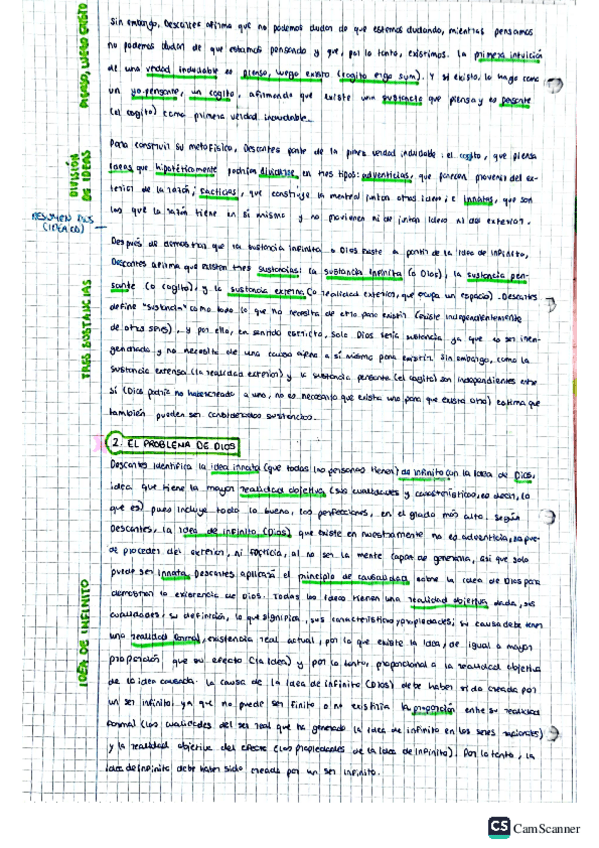 PIENSO, LUEGO EXISTO
Sin embargo, Descartes afirma que no podemos dudar de que estamos dudando, mientras pensamos
no podemos dudar de que estamos pensando y que, por lo tanto, existimos. La primera intuición
de una verdad indudable es pienso, luego existo (cogito ergo sum). Y si existo, lo hago como
un yo pensante, un cogito, afirmando que existe una sustancia que piensa y es pensante
(el cogito) como primera verdad indudable.
DIVISIÓN
DE IDEAS
Para construir su metafísica, Descartes parte de la primera verdad indudable: el cogito, que piensa
ideas que hipotéticamente podrían dividirse en tres tipos: adventicias, que parecen provenir del ex-
terior de la razón; facticias, que construye la mente al juntar otras ideas; e innatas, que son
las que la razón tiene en sí misma y no provienen ni de juntar ideas ni del exterior.
RESUMEN DIOS
(IDEA CO)
TRES SUSTANCIAS
Después de demostrar que la sustancia infinita o Dios existe a partir de la idea de infinito,
Descartes afirma que existen tres sustancias: la sustancia infinita (o Dios), la sustancia pen-
sante (o cogito), y la sustancia extensa (o realidad exterior, que ocupa un espacio). Descartes
define "sustancia" como todo lo que no necesita de otro para existir (existe independientemente
de otros seres), y por ello, en sentido estricto, solo Dios sería sustancia ya que es ser inen-
gendrado y no necesita de una causa ajena a sí misma para existir. Sin embargo, como la
sustancia extensa (la realidad exterior) y la sustancia pensante (el cogito) son independientes entre
sí (Dios podría no haber creado a uno, no es necesario que exista uno para que exista otro) estima que
también pueden ser consideradas sustancias.
2. EL PROBLEMA DE DIOS
IDEA DE INFINITO
Descartes identifica la idea innata (que todas las personas tienen) de infinito con la idea de Dios,
idea que tiene la mayor realidad objetiva (sus cualidades y características, es decir, lo
que es) pues incluye todo lo bueno, las perfecciones, en el grado más alto. Según
Descartes, la idea de infinito (Dios) que existe en nuestra mente no es adventicia, no pue-
de proceder del exterior, ni facticia, al no ser la mente capaz de generarla, así que solo
puede ser innata. Descartes aplicará el principio de causalidad sobre la idea de Dios para
demostrar la existencia de Dios. Todas las ideas tienen una realidad objetiva dada, sus
cualidades, su definición, lo que significa, sus características y propiedades; su causa debe tener
una realidad formal, existencia real actual, por lo que existe la idea, de igual o mayor
proporción que su efecto (la idea) y por lo tanto, proporcional a la realidad objetiva
de la idea causada. La causa de la idea de infinito (Dios) debe haber sido creada por
un ser infinito, ya que no puede ser finito o no existiría la proporción entre su realidad
formal (las cualidades del ser real que ha generado la idea de infinito en los seres racionales)
y la realidad objetiva del efecto (las propiedades de la idea de infinito). Por lo tanto, la
idea de infinito debe haber sido creada por un ser infinito.
CS CamScanner